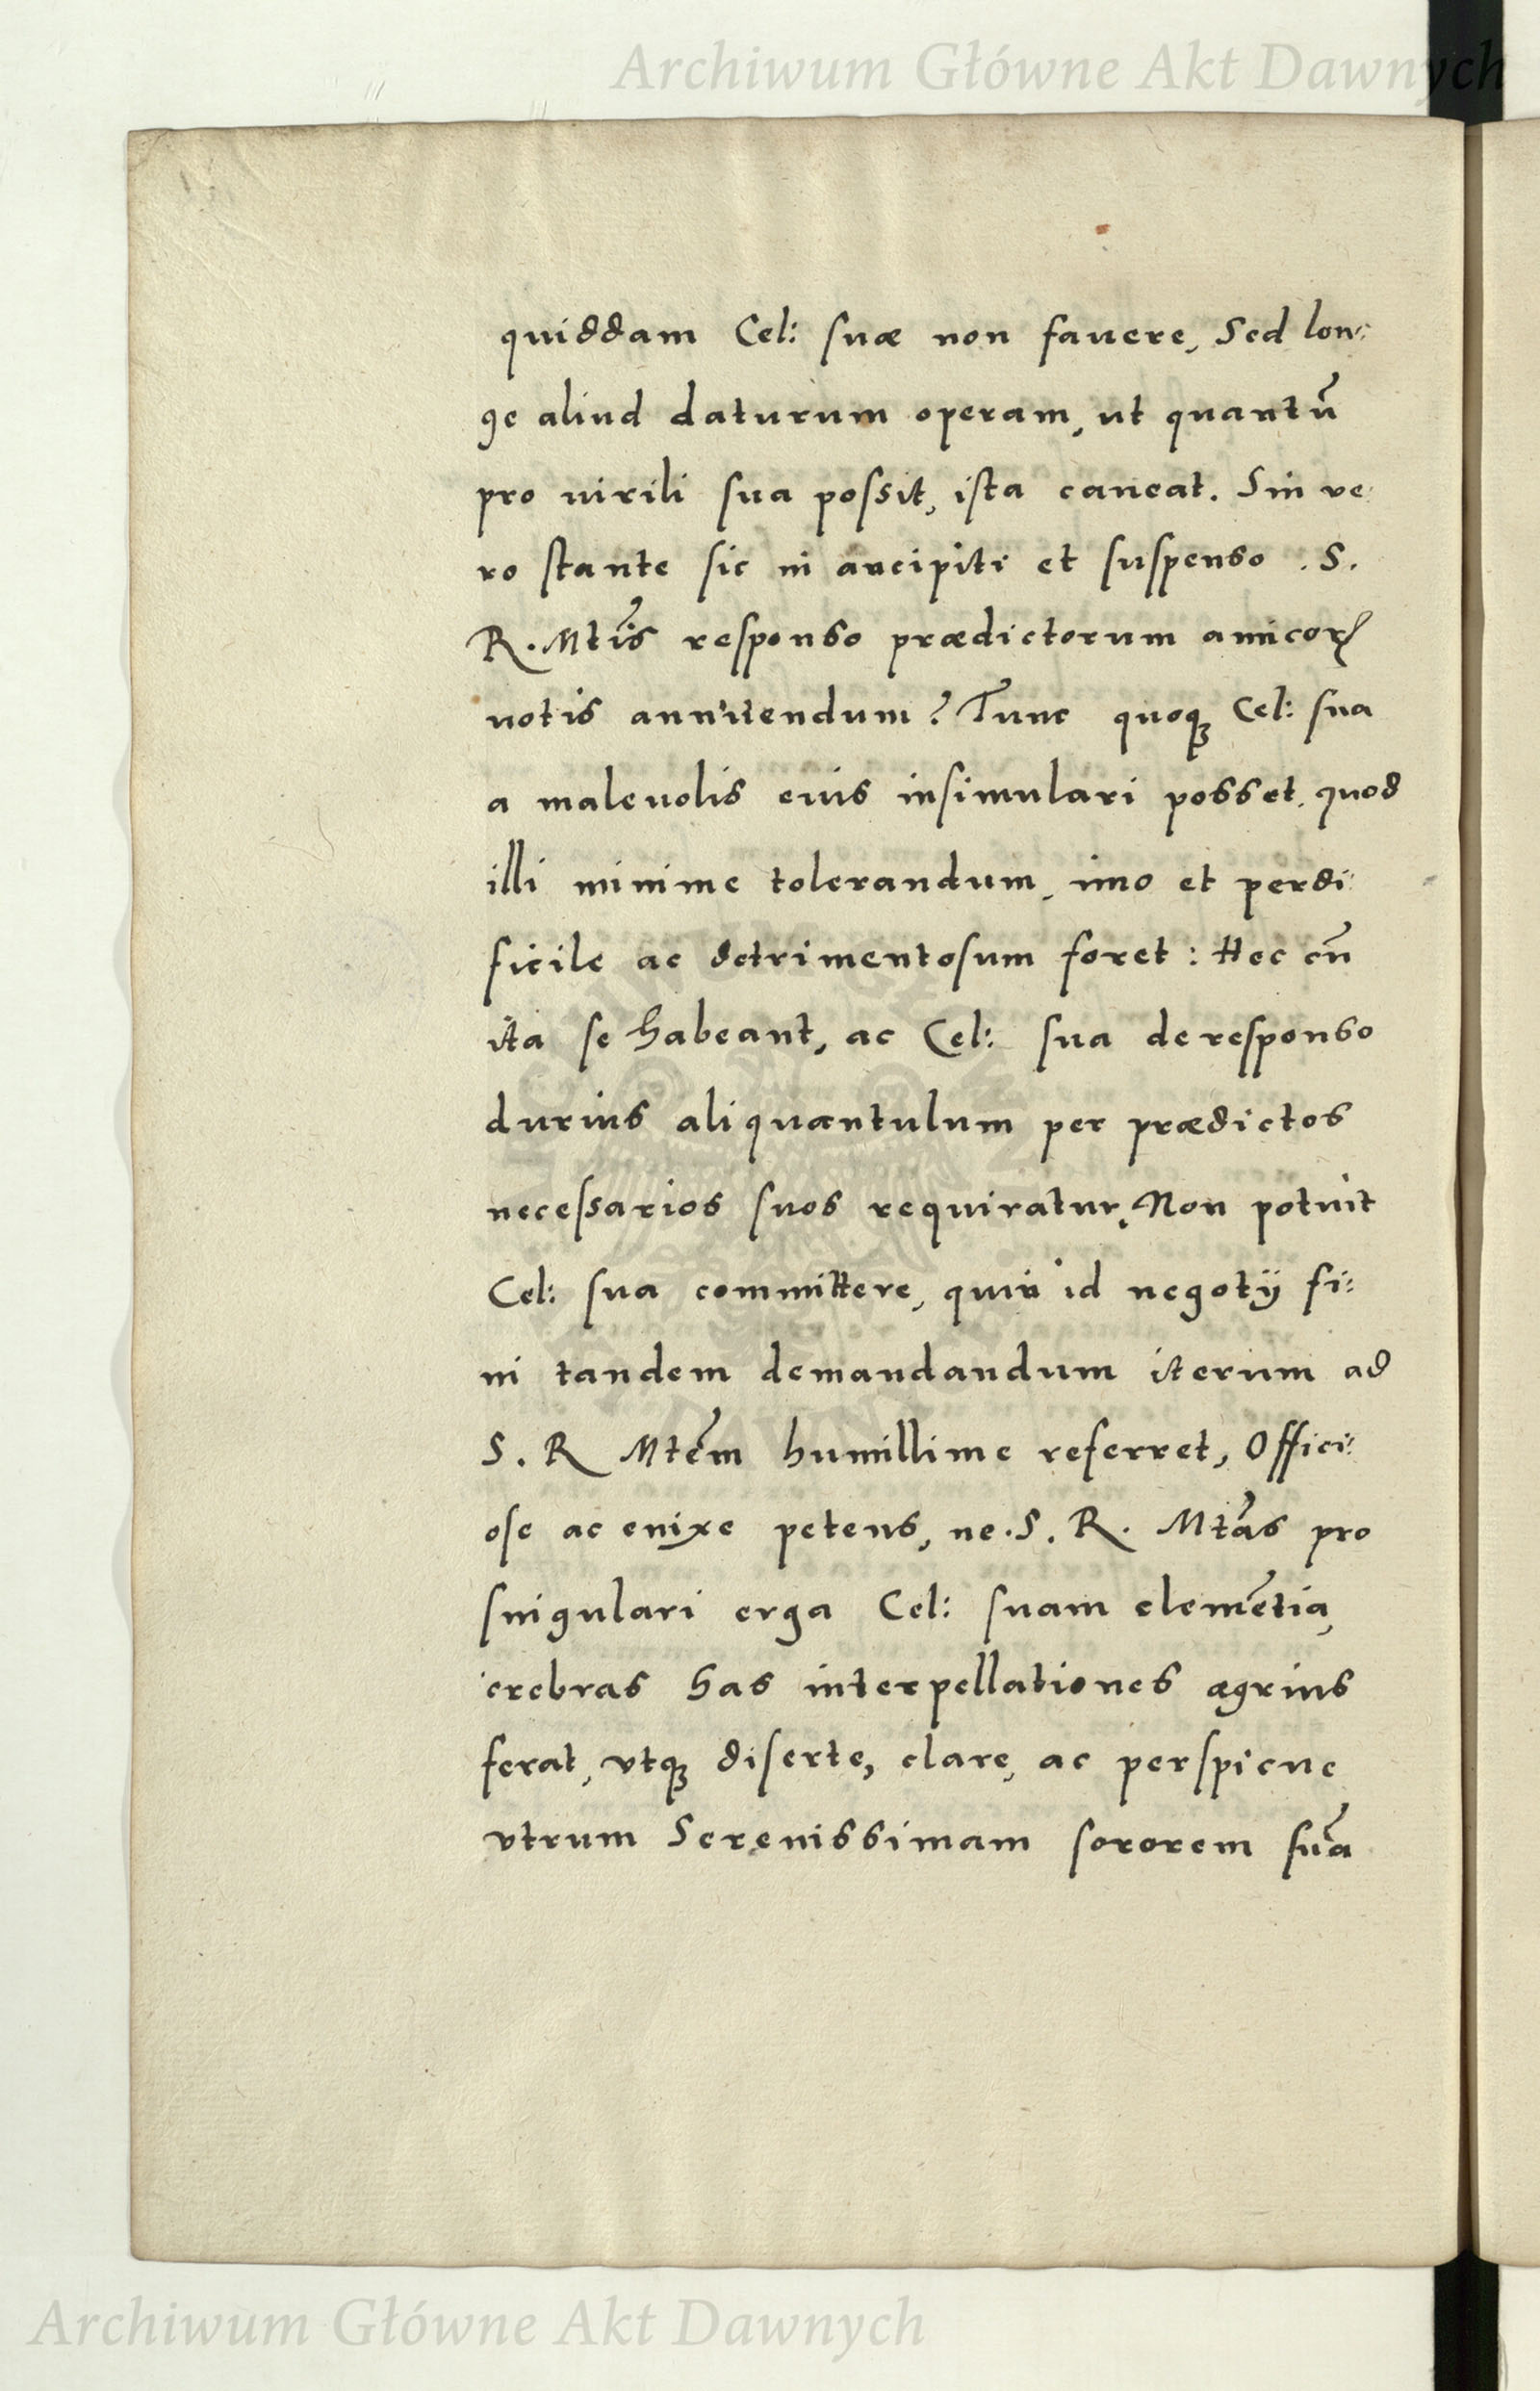 Archiwum Główne Akt Dawnych
quiddam Cel: suæ non fauere, Sed lon:
ge aliud daturum operam, ut quantū
pro uirili sua possit, ista caueat. Sin ve:
ro stante sic in ancipiti et suspenso . S.
R. Mtis responso prædictorum amicoꝝ
uotis annuendum? Tunc quoqꝫ Cel: sua
a maleuolis eius insimulari posset, quod
illi minime tolerandum, imo et perdi:
ficile ac detrimentosum foret: Hec cū
ita se habeant, ac Cel: sua de responso
durius aliquantulum per prædictos
necessarios suos requiratur, Non potuit
Cel: sua committere, quin id negotij fi:
ni tandem demandandum iterum ad
S. R Mtem humillime referret, Offici:
ose ac enixe petens, ne . S. R. Mtas pro
singulari erga Cel: suam clemētia,
crebras has interpellationes ægrius
ferat, vtqꝫ diserte, clare, ac perspicue
vtrum Serenissimam sororem suā
Archiwum Główne Akt Dawnych